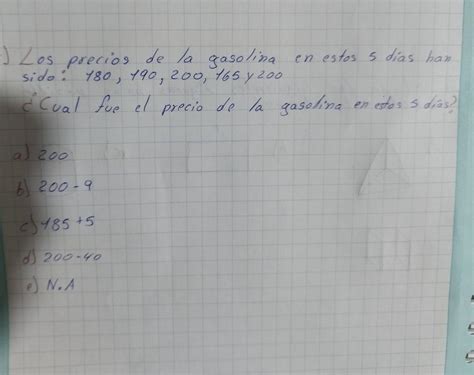 ) Los precios de la gasolina en estos 5 días han
sido: 180, 190, 200, 165 y 200
¿Cual fue el precio de la gasolina en estos 5 días?
a) 200
b) 200-9
c) 185+5
d) 200-40
e) N.A